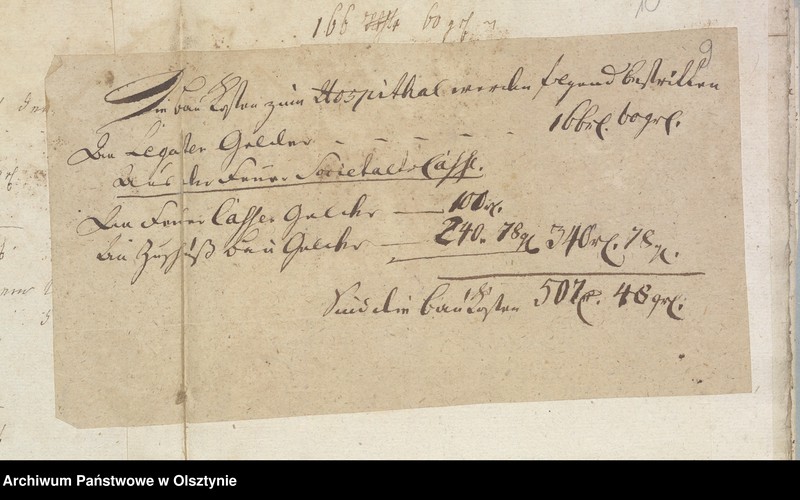 166 60 gr
10
9
Die bau Kosten zum Hospithal werden folgend bestritten
An Legaten Gelder - - - - 166 rl. 60 gr.
Aus der Feuer Societaets Casse.
An Feuer Cassen Gelder — 100 rl.
An Zuschuß bau Gelder — 240. 78 gr 340 rl. 78 gr.
Sind die bau Kosten 507 rl. 48 gr.
Archiwum Państwowe w Olsztynie